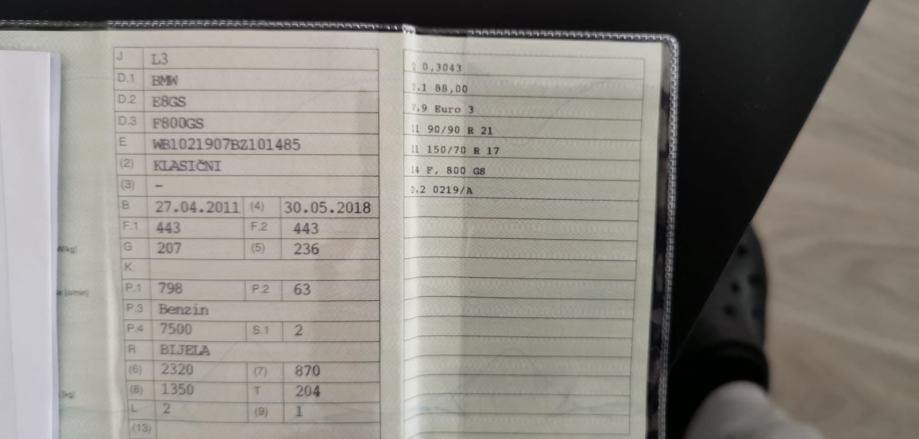 J L3
D.1 BMW
D.2 E8GS
D.3 F800GS
E WB1021907BZ101485
(2) KLASIČNI
(3) -
B 27.04.2011 (4) 30.05.2018
F.1 443 F.2 443
G 207 (5) 236
K
P.1 798 P.2 63
P.3 Benzin
P.4 7500 S.1 2
R BIJELA
(6) 2320 (7) 870
(8) 1350 T 204
L 2 (9) 1
(13)
0,3043
.1 88,00
.9 Euro 3
90/90 R 21
150/70 R 17
F, 800 GS
.2 0219/A